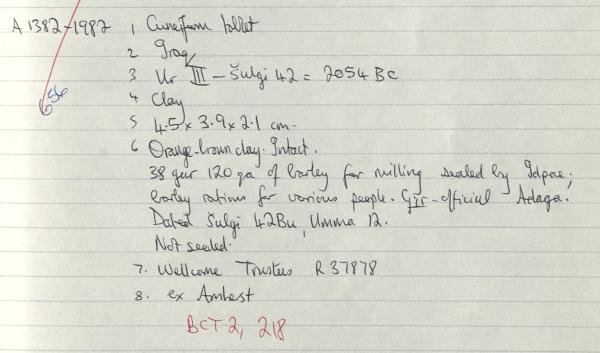 A 1382-1982 1 Cuneiform tablet
2 Iraq
3 Ur III - Šulgi 42 = 2054 BC
656
4 Clay
5 4.5 x 3.9 x 2.1 cm.
6 Orange-brown clay. Intact.
38 gur 120 qa of barley for milling sealed by Idpae;
barley rations for various people. Gìr-official Adaga.
Dated Šulgi 42Bu, Umma 12.
Not sealed.
7. Wellcome Trustees R 37878
8. ex Amherst
BCT 2, 218